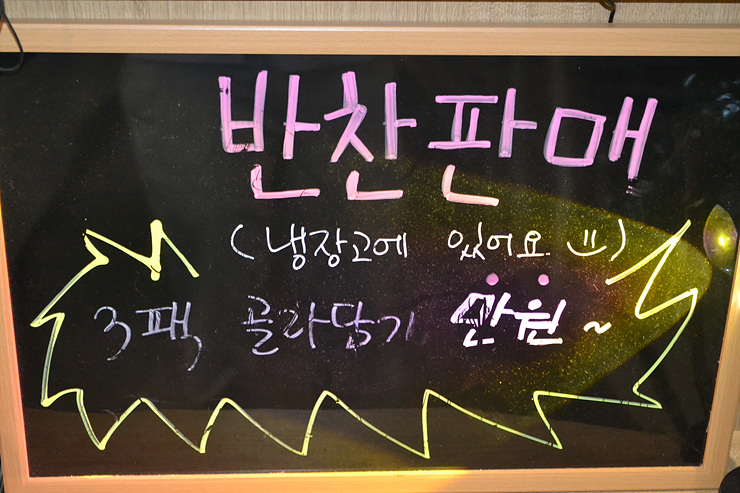 반찬판매
(냉장고에 있어요 =))
3팩 골라담기 만원~